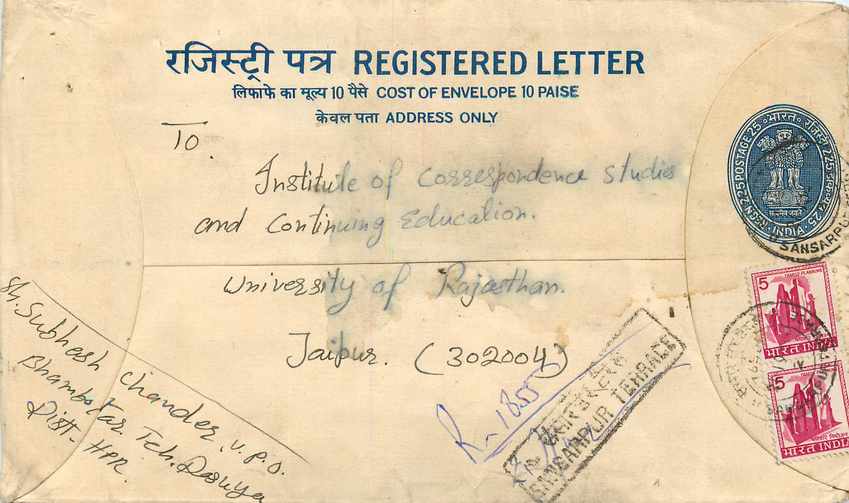 रजिस्ट्री पत्र REGISTERED LETTER
लिफाफे का मूल्य 10 पैसे COST OF ENVELOPE 10 PAISE
केवल पता ADDRESS ONLY
To.
Institute of Correspondence Studies
and Continuing Education.
University of Rajasthan.
Jaipur. (302004)
Sh. Subhash Chander, V.P.O.
Bhambotar Teh. Dasuya
Distt- HPR.
R-1855
SANSARPUR TERRACE
POSTAGE 25 भारत रजिस्ट्री 225
INDIA
SANSARPUR
5
FAMILY PLANNING
भारत INDIA
5
भारत INDIA